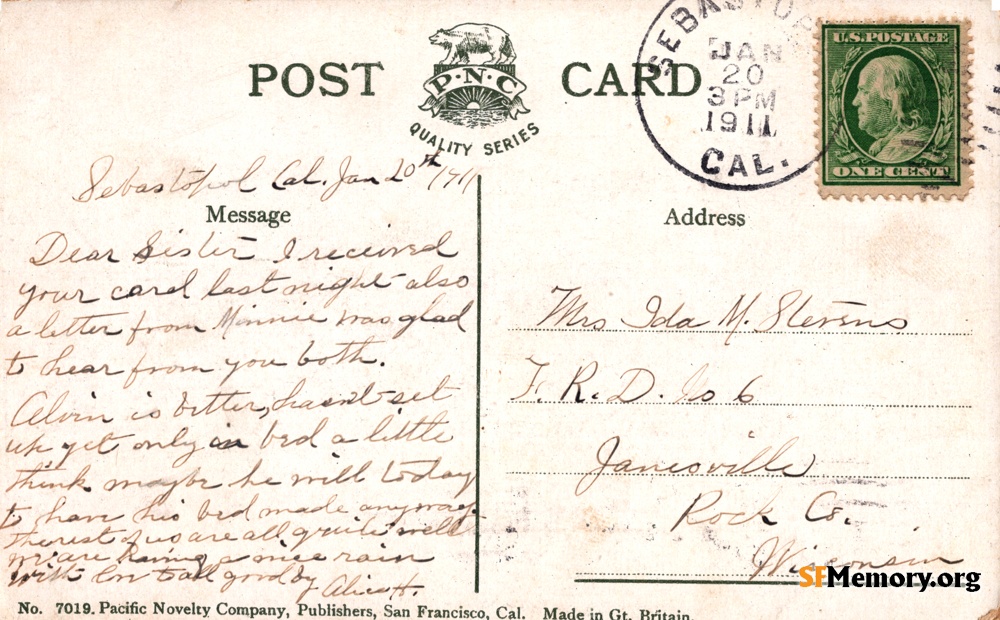 POST CARD
P·N·C
QUALITY SERIES
SEBASTO
JAN
20
3 PM
1911
CAL.
U.S. POSTAGE
ONE CENT
Sebastopol Cal. Jan 20th 1911
Message
Dear Sister I received
your card last night also
a letter from Minnie was glad
to hear from you both.
Alvin is better, hasn't set
up yet only in bed a little
think maybe he will today
to have his bed made anyway
the rest of us are all quite well
we are having a nice rain
with love to all good by
Alice H.
Address
Mrs Ida M. Stevens
F. R. D. No 6
Janesville
Rock Co.
Wisconsin
SFMemory.org
No. 7019. Pacific Novelty Company, Publishers, San Francisco, Cal. Made in Gt. Britain.